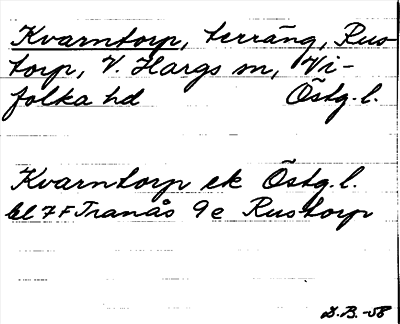 Kvarntorp, terräng, Rus-
torp, V. Hargs sn, Vi-
folka hd Östg. l.
Kvarntorp ek Östg. l.
bl 7F Tranås 9e Rustorp
D.B. -58